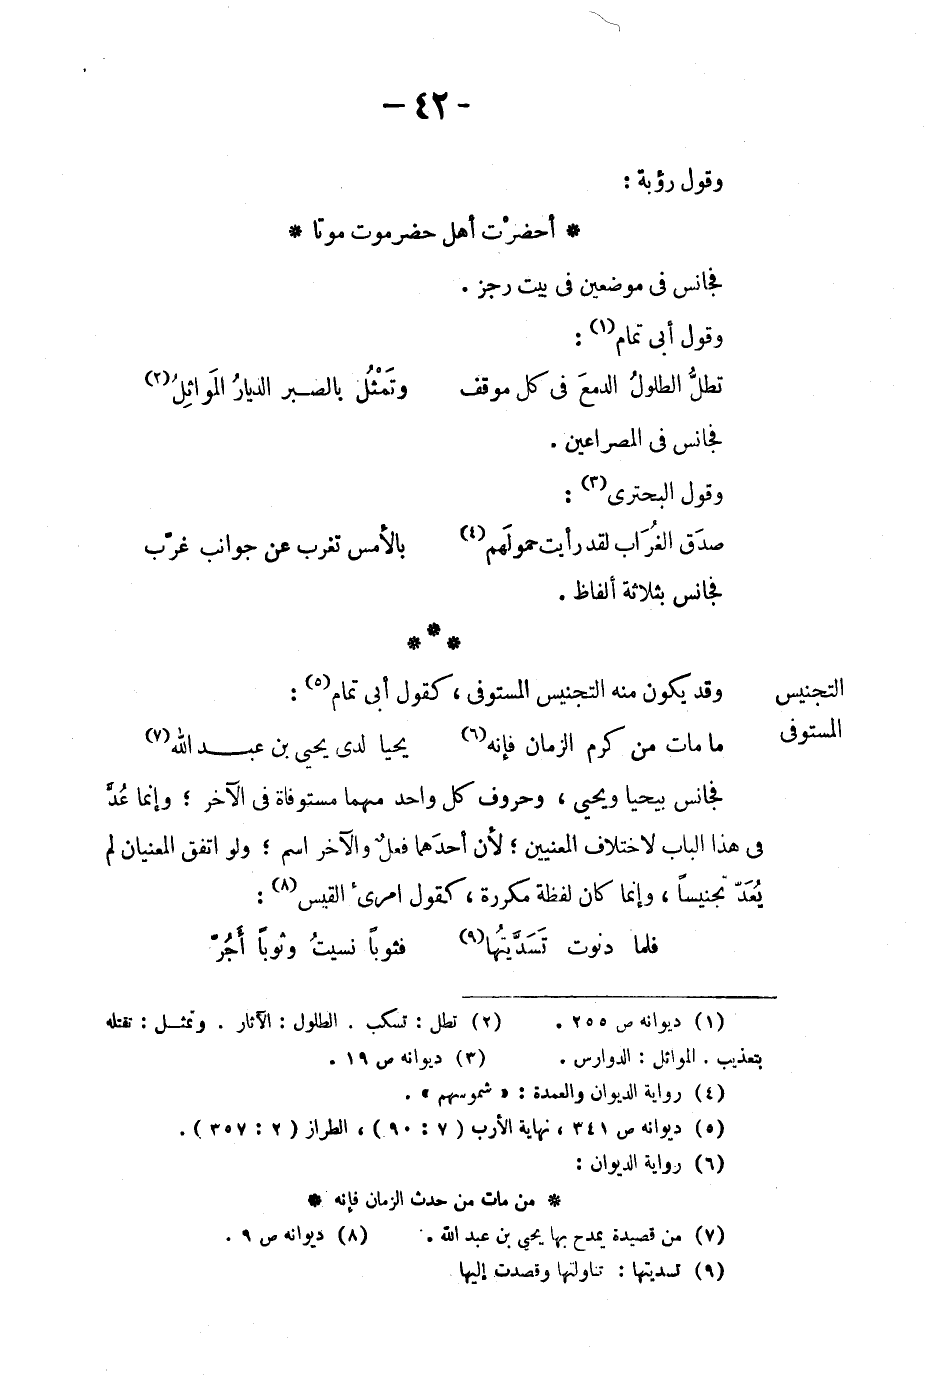 — ٤٢ —
وقول رؤبة :
* أحضرْت أهل حضرموت موتا *
فجانس فى موضعين فى بيت رجز .
وقول أبى تمام(١) :
تطلُّ الطلولُ الدمعَ فى كل موقف وتَمْثُل بالصبر الديارُ المَواثِلُ(٢)
فجانس فى المصراعين .
وقول البحترى(٣) :
صدَق الغُرَاب لقد رأيت حمولَهم(٤) بالأمس تغرب عن جوانب غرّب
فجانس بثلاثة ألفاظ .
* * *
التجنيس المستوفى
وقد يكون منه التجنيس المستوفى ، كقول أبى تمام(٥) :
ما مات من كرم الزمان فإنه(٦) يحيا لدى يحيى بن عبد الله(٧)
فجانس بيحيا ويحيى ، وحروف كل واحد منهما مستوفاة فى الآخر ؛ وإنما عُدَّ
فى هذا الباب لاختلاف المعنيين ؛ لأن أحدَهما فعلٌ والآخر اسم ؛ ولو اتفق المعنيان لم
يُعَدّ تجنيساً ، وإنما كان لفظة مكررة ، كقول امرىء القيس(٨) :
فلما دنوت تَسَدَّيتُها(٩) فثوباً نسيتُ وثوباً أَجُرّ
(١) ديوانه ص ٢٥٥ . (٢) تطل : تسكب . الطلول : الآثار . وتمثل : تقتله
بتعذيب . الموائل : الدوارس . (٣) ديوانه ص ١٩ .
(٤) رواية الديوان والعمدة : « شموسهم » .
(٥) ديوانه ص ٣٤١ ، نهاية الأرب ( ٧ : ٩٠ ) ، الطراز ( ٢ : ٣٥٧ ) .
(٦) رواية الديوان :
* من مات من حدث الزمان فإنه *
(٧) من قصيدة يمدح بها يحيى بن عبد الله . (٨) ديوانه ص ٩ .
(٩) تسديتها : تناولتها وقصدت إليها